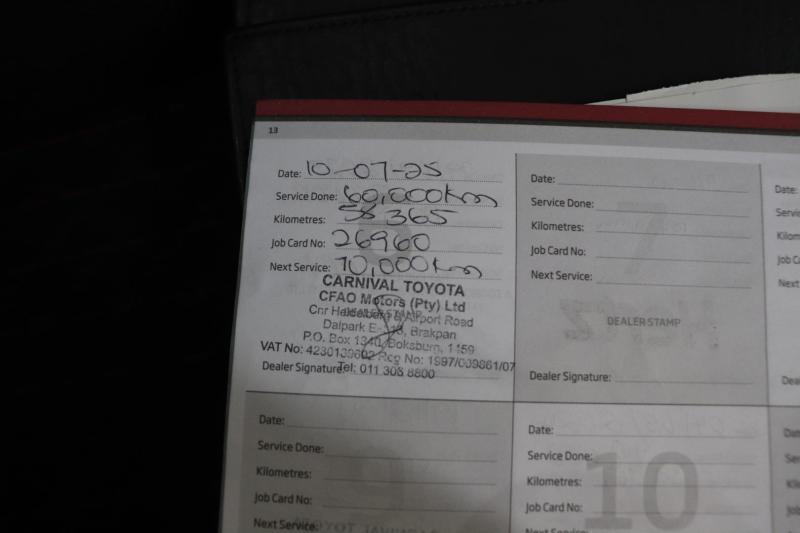 13
Date: 10-07-25
Service Done: 60,000km
Kilometres: 58 365
Job Card No: 26960
Next Service: 70,000km
CARNIVAL TOYOTA
CFAO Motors (Pty) Ltd
DEALER STAMP
Cnr Heidelberg & Airport Road
Dalpark E- Brakpan
P.O. Box 1340, Boksburn, 1459
VAT No: 4230139602 Reg No: 1997/009861/07
Dealer Signature:
Tel: 011 308 8800
7
Date:
Service Done:
Kilometres:
Job Card No:
Next Service:
DEALER STAMP
Dealer Signature:
Date:
Servi
Kilom
Job C
Next
Deal
Date:
Service Done:
Kilometres:
Job Card No:
Next Service:
10
Date:
Service Done:
Kilometres:
Job Card No:
Next Service:
Dat
Ser
Kil
Job